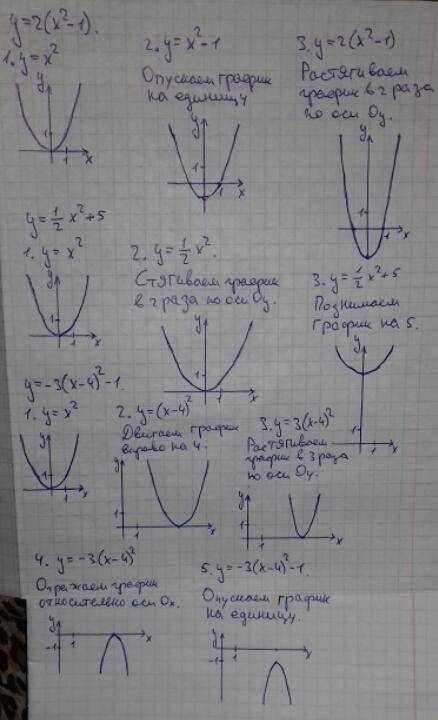 y=2(x²-1).
1. y=x²
2. y=x²-1
Опускаем график
на единицу
3. y=2(x²-1)
Растягиваем
график в 2 раза
по оси Oy.
y
1
1
x
y
1
1
x
y
1
1
x
y=½x²+5
1. y=x²
2. y=½x².
Стягиваем график
в 2 раза по оси Oy.
3. y=½x²+5
Поднимаем
график на 5.
y
1
1
x
y
1
1
x
y
1
1
x
y=-3(x-4)²-1.
1. y=x²
2. y=(x-4)²
Двигаем график
вправо на 4.
3. y=3(x-4)²
Растягиваем
график в 3 раза
по оси Oy.
y
1
1
x
y
1
1
x
y
1
1
x
4. y=-3(x-4)²
Отражаем график
относительно оси Ox.
5. y=-3(x-4)²-1.
Опускаем график
на единицу.
y
-1
1
x
y
-1
1
x